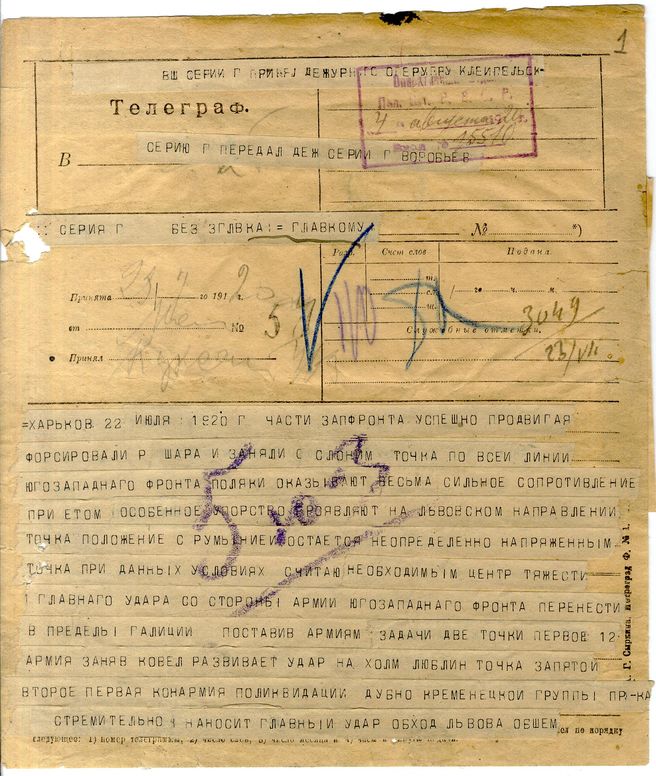 1
ВШ СЕРИИ Г ПРИНЯЛ ДЕЖУРНГ
Телеграф.
4 августа
15540
В
СЕРИЮ Г ПЕРЕДАЛ ДЕЖ СЕРИИ Г ВОРОБЬЕВ
СЕРИЯ Г БЕЗ ЗГЛВКА := ГЛАВКОМУ № *)
Разр. Счет слов Подана
Принята 23/7 го 191 20 г.
от № 5
ч. м.
Служебные отметки.
3049
23/VII
Принял
=ХАРЬКОВ 22 ИЮЛЯ 1920 Г ЧАСТИ ЗАПФРОНТА УСПЕШНО ПРОДВИГАЯ
ФОРСИРОВАЛИ Р ШАРА И ЗАНЯЛИ Г СЛОНИМ ТОЧКА ПО ВСЕЙ ЛИНИИ
ЮГОЗАПАДНАГО ФРОНТА ПОЛЯКИ ОКАЗЫВАЮТ ВЕСЬМА СИЛЬНОЕ СОПРОТИВЛЕНИЕ
ПРИ ЕТОМ ОСОБЕННОЕ УПОРСТВО ПРОЯВЛЯЮТ НА ЛЬВОВСКОМ НАПРАВЛЕНИИ
ТОЧКА ПОЛОЖЕНИЕ С РУМЫНИЕЙ ОСТАЕТСЯ НЕОПРЕДЕЛЕННО НАПРЯЖЕННЫМ
ТОЧКА ПРИ ДАННЫХ УСЛОВИЯХ СЧИТАЮ НЕОБХОДИМЫМ ЦЕНТР ТЯЖЕСТИ
ГЛАВНАГО УДАРА СО СТОРОНЫ АРМИИ ЮГОЗАПАДНАГО ФРОНТА ПЕРЕНЕСТИ
В ПРЕДЕЛЫ ГАЛИЦИИ ПОСТАВИВ АРМИЯМ ЗАДАЧИ ДВЕ ТОЧКИ ПЕРВОЕ 12
АРМИЯ ЗАНЯВ КОВЕЛ РАЗВИВАЕТ УДАР НА ХОЛМ ЛЮБЛИН ТОЧКА ЗАПЯТОЙ
ВТОРОЕ ПЕРВАЯ КОНАРМИЯ ПОЛИКВИДАЦИИ ДУБНО КРЕМЕНЕЦКОЙ ГРУППЫ ПР-КА
СТРЕМИТЕЛЬНО НАНОСИТ ГЛАВНЫЙ УДАР ОБХОД ЛЬВОВА ОБШЕМ
следующее: 1) номер телеграммы, 2) число слов, 3) число месяца и 4) часы и минуты подачи.
по порядку
Г. Сыркина. Ф. № 1.